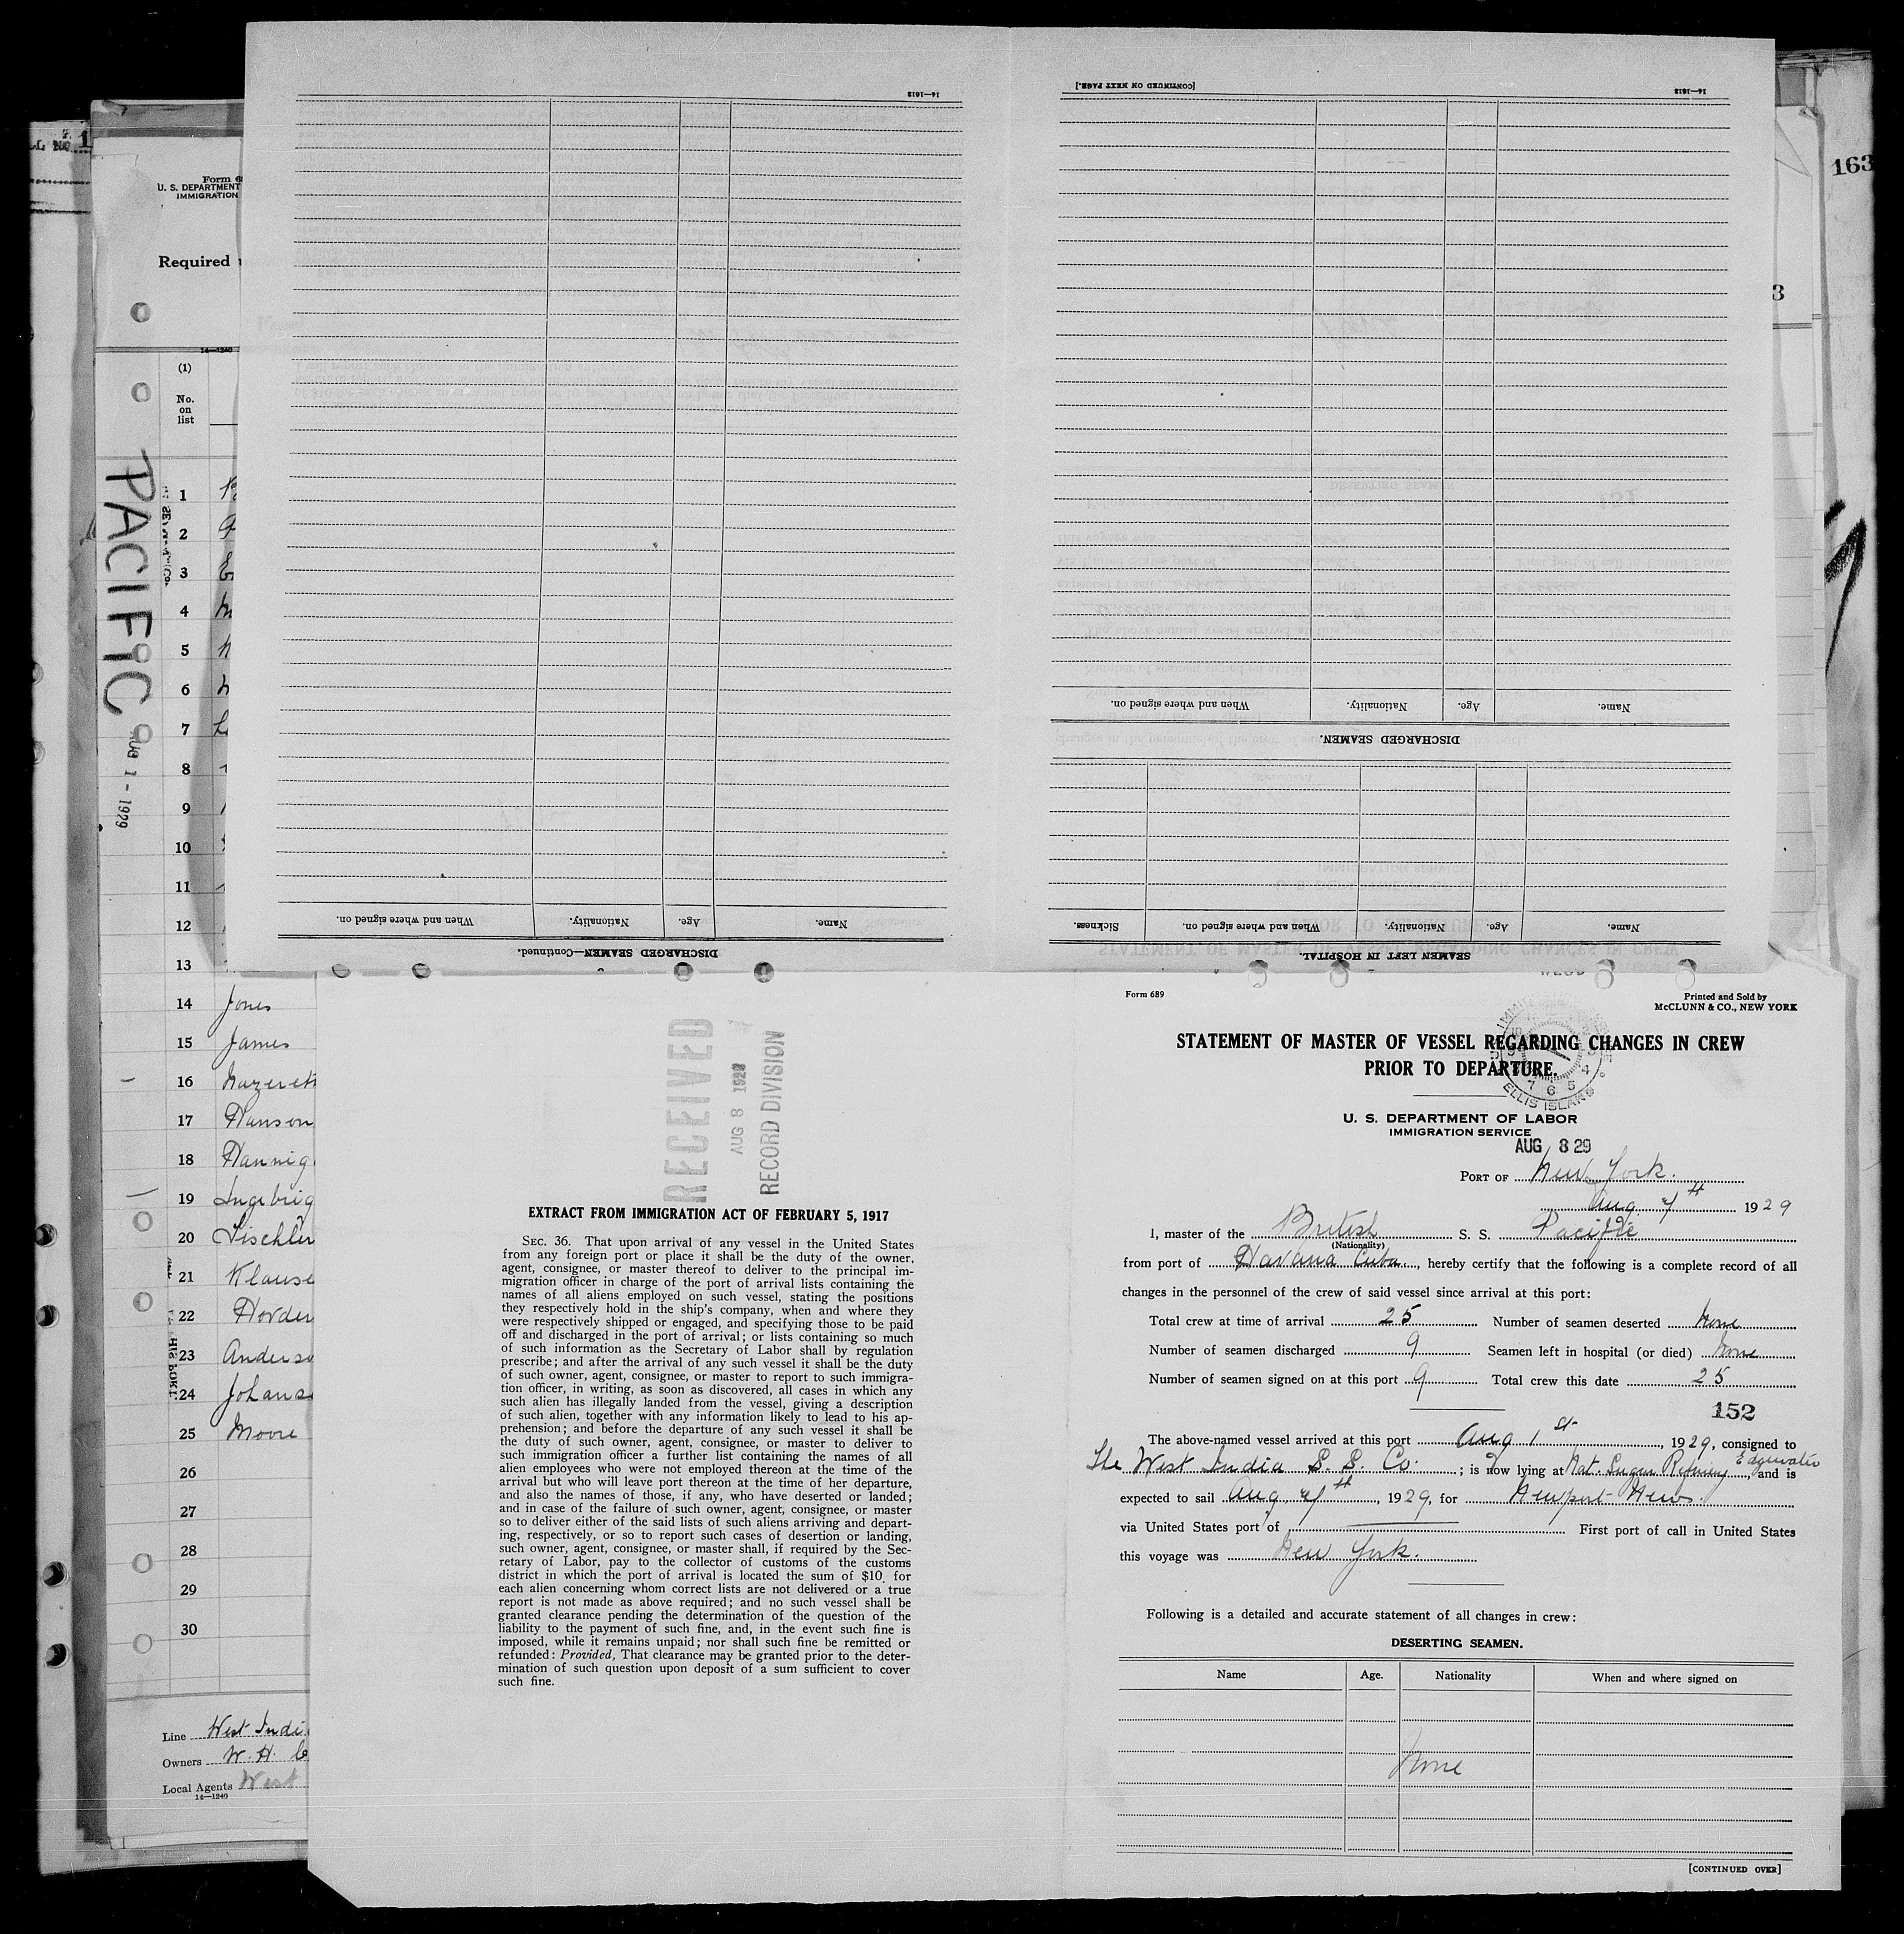 14—1612
[CONTINUED ON NEXT PAGE.]
14—1612
When and where signed on.
Nationality.
Age.
Name.
DISCHARGED SEAMEN.
When and where signed on.
Nationality.
Age.
Name.
DISCHARGED SEAMEN—Continued.
Sickness.
When and where signed on.
Nationality.
Age.
Name.
SEAMEN LEFT IN HOSPITAL.
163
3
U. S. DEPARTMENT
IMMIGRATION
Required
14—1240
(1)
No.
on
list
PACIFIC
AUG 1 - 1929
1
2
3
4
5
6
7
8
9
10
11
12
13
14 Jones
15 James
16 Nazereth
17 Hanson
18 Hannig
19 Ingebrig
20 Tischler
21 Klause
22 Horder
23 Anderso
24 Johans
25 Moore
26
27
28
29
30
Line West Indi
Owners W. H.
Local Agents West
14—1240
RECEIVED
AUG 8 1929
RECORD DIVISION
EXTRACT FROM IMMIGRATION ACT OF FEBRUARY 5, 1917
SEC. 36. That upon arrival of any vessel in the United States
from any foreign port or place it shall be the duty of the owner,
agent, consignee, or master thereof to deliver to the principal im-
migration officer in charge of the port of arrival lists containing the
names of all aliens employed on such vessel, stating the positions
they respectively hold in the ship's company, when and where they
were respectively shipped or engaged, and specifying those to be paid
off and discharged in the port of arrival; or lists containing so much
of such information as the Secretary of Labor shall by regulation
prescribe; and after the arrival of any such vessel it shall be the duty
of such owner, agent, consignee, or master to report to such immigra-
tion officer, in writing, as soon as discovered, all cases in which any
such alien has illegally landed from the vessel, giving a description
of such alien, together with any information likely to lead to his ap-
prehension; and before the departure of any such vessel it shall be
the duty of such owner, agent, consignee, or master to deliver to
such immigration officer a further list containing the names of all
alien employees who were not employed thereon at the time of the
arrival but who will leave port thereon at the time of her departure,
and also the names of those, if any, who have deserted or landed;
and in case of the failure of such owner, agent, consignee, or master
so to deliver either of the said lists of such aliens arriving and depart-
ing, respectively, or so to report such cases of desertion or landing,
such owner, agent, consignee, or master shall, if required by the Sec-
retary of Labor, pay to the collector of customs of the customs
district in which the port of arrival is located the sum of $10 for
each alien concerning whom correct lists are not delivered or a true
report is not made as above required; and no such vessel shall be
granted clearance pending the determination of the question of the
liability to the payment of such fine, and, in the event such fine is
imposed, while it remains unpaid; nor shall such fine be remitted or
refunded: Provided, That clearance may be granted prior to the deter-
mination of such question upon deposit of a sum sufficient to cover
such fine.
Form 689
Printed and Sold by
McCLUNN & CO., NEW YORK
STATEMENT OF MASTER OF VESSEL REGARDING CHANGES IN CREW
PRIOR TO DEPARTURE.
ELLIS ISLAND
U. S. DEPARTMENT OF LABOR
IMMIGRATION SERVICE
AUG 8 29
PORT OF New York.
Aug 7th 1929
I, master of the British S. S. Pacific
(Nationality)
from port of Havana Cuba, hereby certify that the following is a complete record of all
changes in the personnel of the crew of said vessel since arrival at this port:
Total crew at time of arrival 25 Number of seamen deserted None
Number of seamen discharged 9 Seamen left in hospital (or died) None
Number of seamen signed on at this port 9 Total crew this date 25
152
The above-named vessel arrived at this port Aug 1st, 1929, consigned to
The West India S. S. Co. ; is now lying at Nat. Sugar Refining Edgewater, and is
expected to sail Aug 7th, 1929, for Newport News.
via United States port of First port of call in United States
this voyage was New York.
Following is a detailed and accurate statement of all changes in crew:
DESERTING SEAMEN.
Name Age. Nationality When and where signed on
None
[CONTINUED OVER]